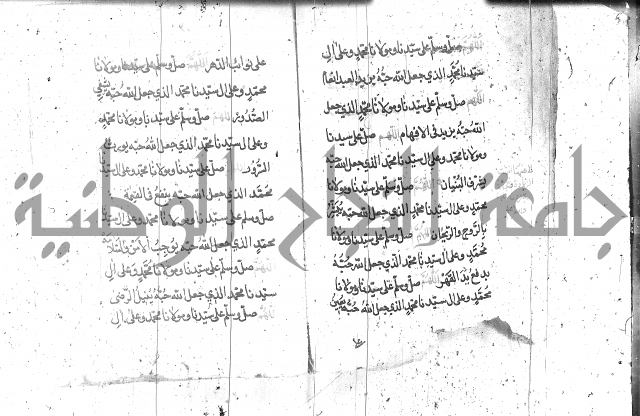 اللهم صل وسلم على سيدنا ومولانا محمد وعلى ال
سيدنا محمد الذي جعل الله حبه يزيد
اللهم صل وسلم على سيدنا ومولانا محمد الذي جعل
الله حبه يزيد في الافهام اللهم صل على سيدنا
ومولانا محمد وعلى ال سيدنا محمد الذي جعل الله حبه
اللهم صل وسلم على سيدنا ومولانا
محمد وعلى ال سيدنا محمد الذي جعل الله حبه
بالروح والريحان اللهم صل وسلم على سيدنا ومولانا
محمد وعلى ال سيدنا محمد الذي جعل الله حبه
يدفع القهر اللهم صل وسلم على سيدنا ومولانا
محمد وعلى ال سيدنا محمد الذي جعل الله حبه
على نوائب الدهر اللهم صل وسلم على سيدنا ومولانا
محمد وعلى ال سيدنا محمد الذي جعل الله حبه يشفي
الصدور اللهم صل وسلم على سيدنا ومولانا محمد
وعلى ال سيدنا محمد الذي جعل الله حبه
اللهم صل وسلم على سيدنا ومولانا محمد وعلى ال سيدنا
محمد الذي جعل الله حبه ينفع في القيمة
صل وسلم على سيدنا ومولانا محمد وعلى ال سيدنا
محمد الذي جعل الله حبه يوجب
اللهم صل وسلم على سيدنا ومولانا محمد وعلى ال
سيدنا محمد الذي جعل الله حبه ينيل الرضى
اللهم صل وسلم على سيدنا ومولانا محمد وعلى ال
جامعة النجاح الوطنية